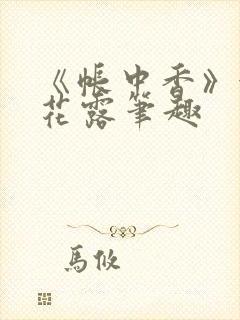 《帳中香》
花露筆趣
馬攸